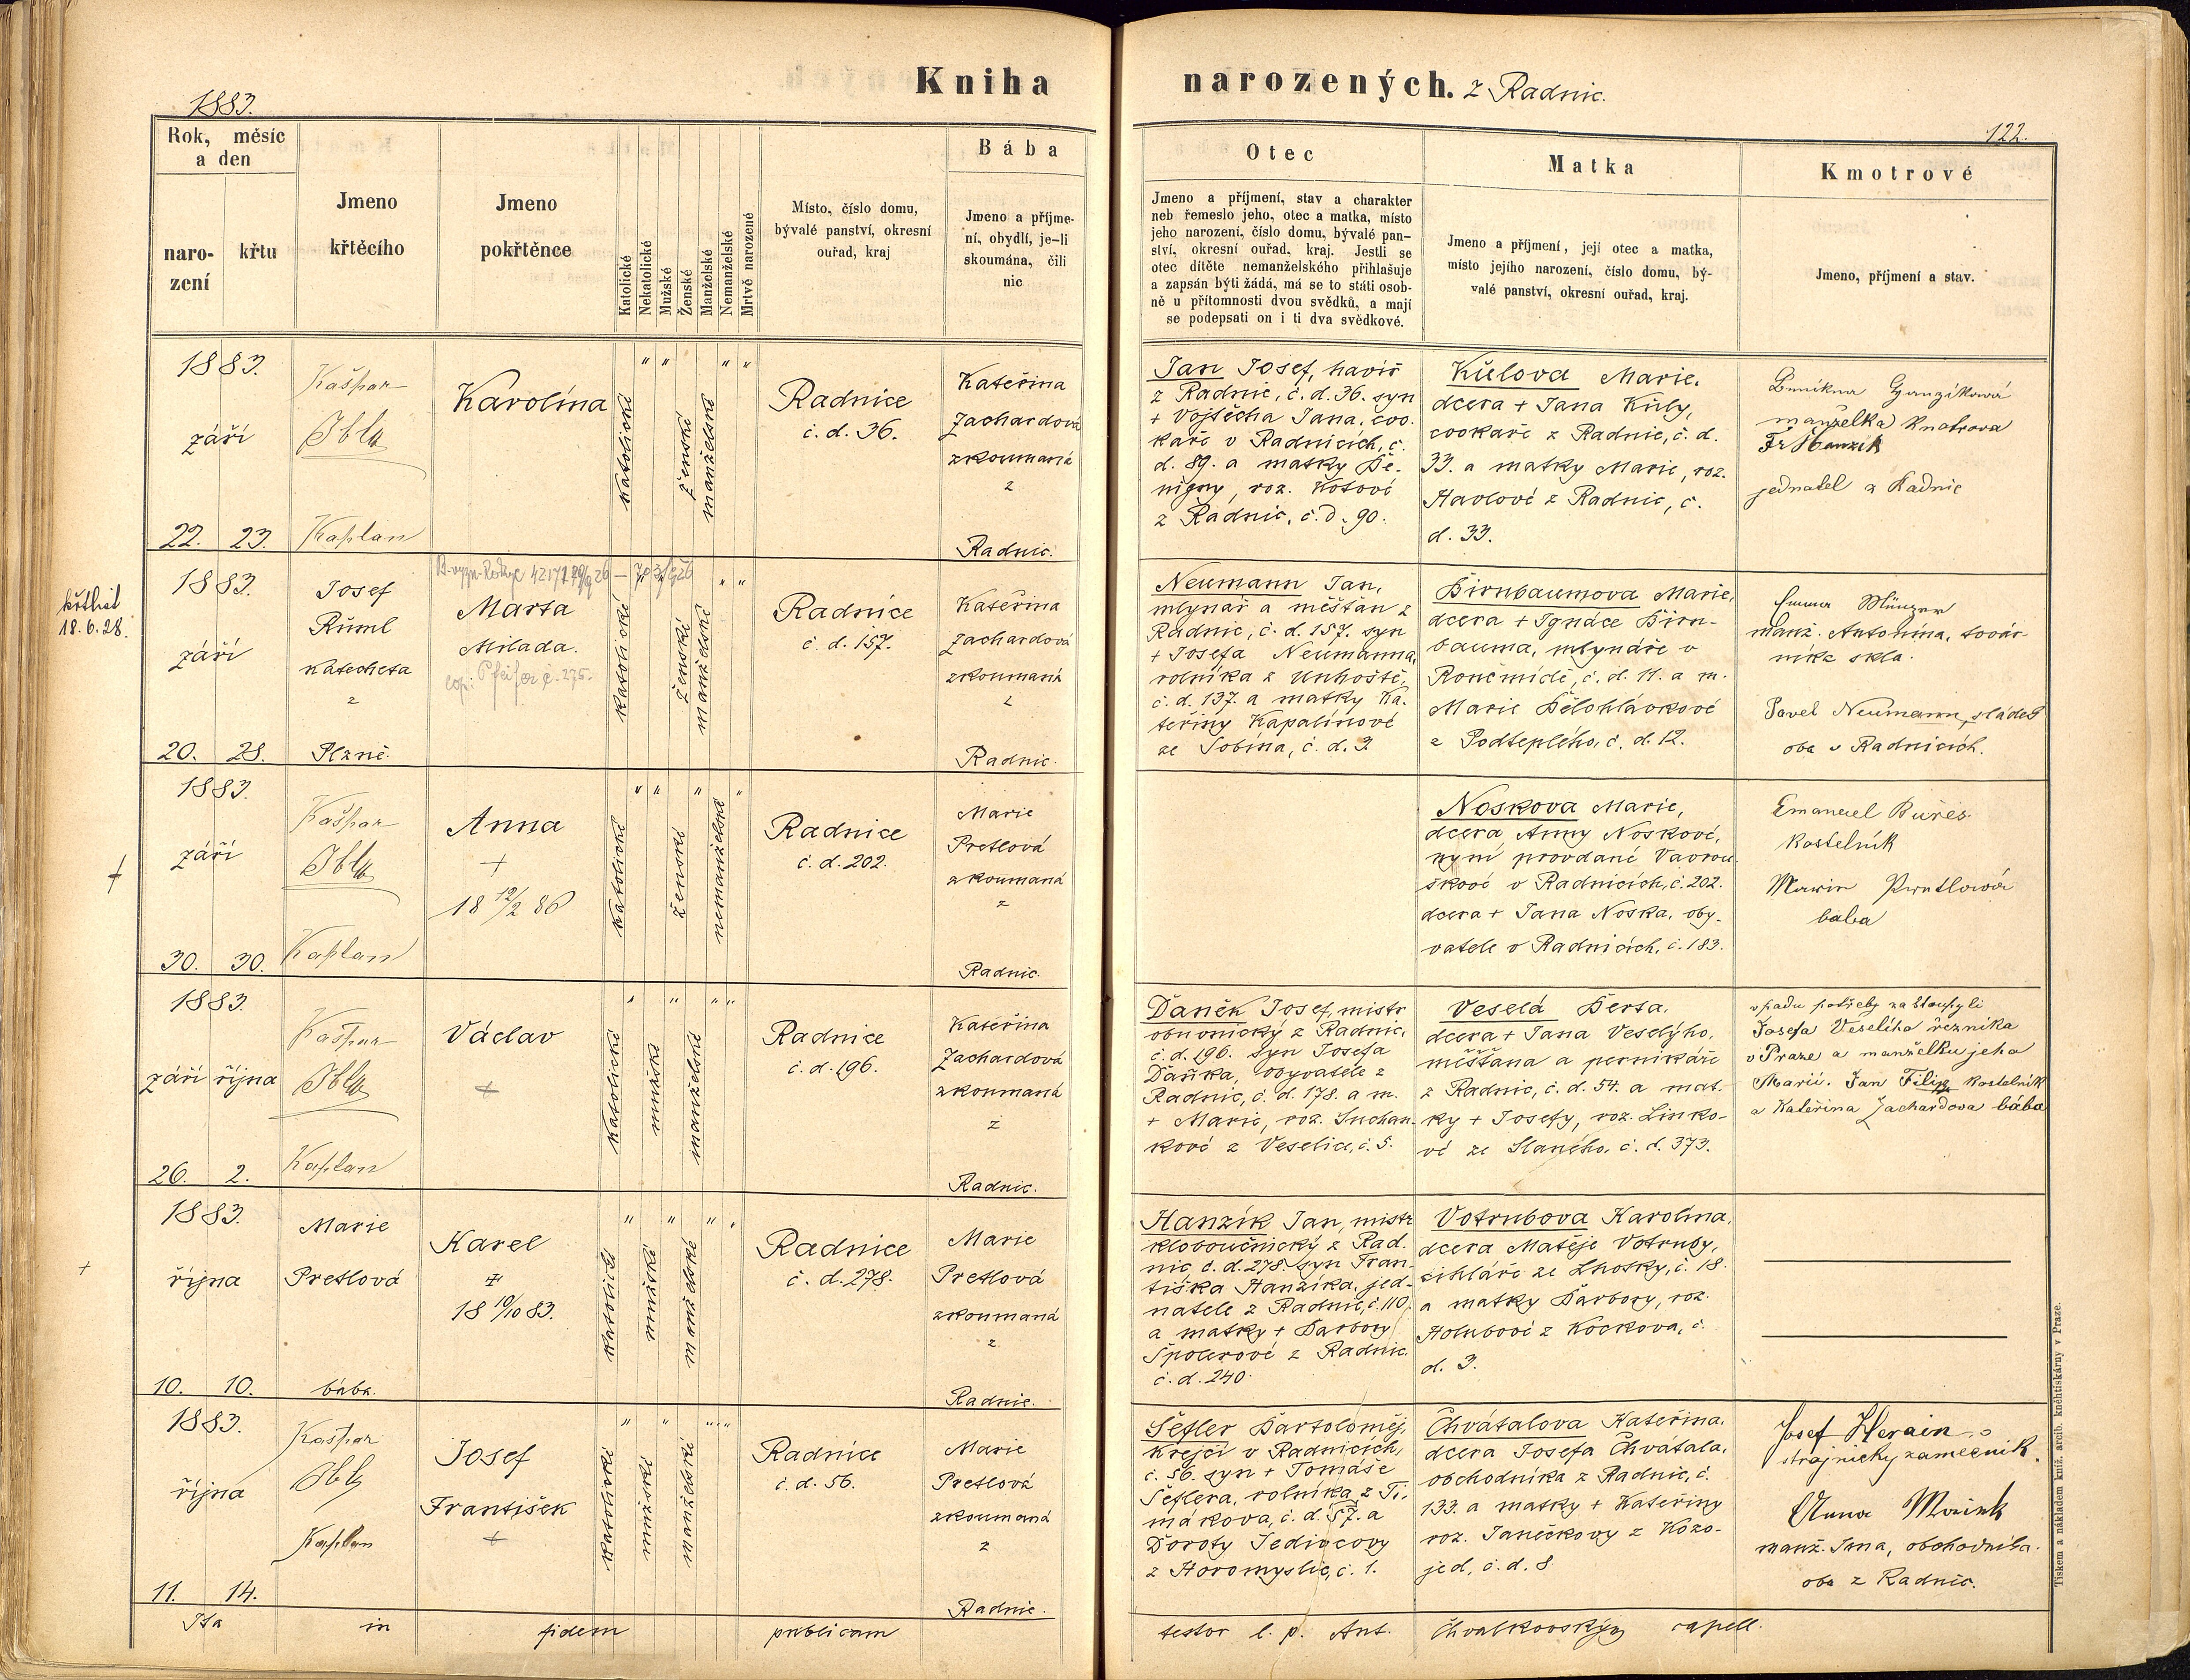 Kniha
narozených. z Radnic.
1883.
122.
Rok, měsíc
a den
naro-
zení
křtu
Jmeno
křtěcího
Jmeno
pokřtěnce
Katolické
Nekatolické
Mužské
Ženské
Manželské
Nemanželské
Mrtvě narozené
Místo, číslo domu,
bývalé panství, okresní
ouřad, kraj
Bába
Jmeno a příjme-
ní, obydlí, je-li
skoumána, čili
nic
Otec
Jmeno a příjmení, stav a charakter
neb řemeslo jeho, otec a matka, místo
jeho narození, číslo domu, bývalé pan-
ství, okresní ouřad, kraj. Jestli se
otec dítěte nemanželského přihlašuje
a zapsán býti žádá, má se to státi osob-
ně u přítomnosti dvou svědků, a mají
se podepsati on i ti dva svědkové.
Matka
Jmeno a příjmení, její otec a matka,
místo jejího narození, číslo domu, bý-
valé panství, okresní ouřad, kraj.
Kmotrové
Jmeno, příjmení a stav.
1883.
září
22. 23.
Kašpar
Kaplan
Karolína
katolické
ženské
manželské
Radnice
č. d. 36.
Kateřina
Zachardová
zkoumaná
z
Radnic.
Jan Josef, havíř
z Radnic, č. d. 36. syn
+ Vojtěcha Jana, coo.
kaře v Radnicích, č.
d. 89. a matky Be-
nigny, roz. Kotové
z Radnic, č. d. 90.
Kůlova Marie,
dcera + Jana Kůly,
cookaře z Radnic, č. d.
33. a matky Marie, roz.
Havlové z Radnic, č.
d. 33.
manželka
Fr Hanzík
jednatel z Radnic
křtlist
18.6.28.
1883.
září
20. 28.
Josef
Růml
katecheta
z
Plzně.
Marta
Milada.
katolické
ženské
manželské
Radnice
č. d. 157.
Kateřina
Zachardová
zkoumaná
z
Radnic.
Neumann Jan,
mlynář a měšťan z
Radnic, č. d. 157. syn
+ Josefa Neumanna,
rolníka z Unhoště,
č. d. 137. a matky Ka-
teřiny Kapalínové
ze Sobína, č. d. 3
Birnbaumova Marie,
dcera + Ignáce Birn-
bauma, mlynáře v
č. d. 11. a m.
Marie Bělohlávkové
z Podteplého, č. d. 12.
Emma Münzer
manž. Antonína, továr-
níka skla.
Pavel Neumann, sládek
oba v Radnicích.
+
1883.
září
30. 30.
Kašpar
Kaplan
Anna
+
18 12/2 86
katolické
ženské
nemanželské
Radnice
č. d. 202.
Marie
Pretlová
zkoumaná
z
Radnic.
Noskova Marie,
dcera Anny Noskové,
nyní provdané Vavrou
škové v Radnicích, č. 202.
dcera + Jana Noska, oby-
vatele v Radnicích, č. 183.
Emanuel Bureš
kostelník
Marie Pretlová
baba
1883.
září října
26. 2.
Kašpar
Kaplan
Václav
+
katolické
mužské
manželské
Radnice
č. d. 196.
Kateřina
Zachardová
zkoumaná
z
Radnic.
Daněk Josef, mistr
obuvnický z Radnic,
č. d. 196. syn Josefa
Daňka, obyvatele z
Radnic, č. d. 178. a m.
+ Marie, roz. Suchan-
kové z Veselice, č. 5.
Veselá Berta,
dcera + Jana Veselýho,
měšťana a pernikáře
z Radnic, č. d. 54. a mat-
ky + Josefy, roz. Linko-
vé ze Slaného, č. d. 373.
v pádu potřeby zastoupili
Josefa Veselího řezníka
v Praze a manželku jeho
Marii. Jan Filip kostelník
a Kateřina Zachardova bába
+
1883.
října
10. 10.
Marie
Pretlová
bába.
Karel
+
18 19/10 83.
katolické
mužské
manželské
Radnice
č. d. 278.
Marie
Pretlová
zkoumaná
z
Radnic.
Hanzík Jan, mistr
kloboučnický z Rad.
nic č. d. 278. syn Fran-
tiška Hanzíka, jed-
natele z Radnic, č. 110,
a matky + Barbory
Špolerové z Radnic
č. d. 240.
Votrubova Karolína,
dcera Matěje Votruby,
cihláře ze Lhotky, č. 18.
a matky Barbory, roz.
Holubové z Kockova, č.
d. 3.
1883.
října
11. 14.
Kašpar
Kaplan
Josef
František
+
katolické
mužské
manželské
Radnice
č. d. 56.
Marie
Pretlová
zkoumaná
z
Radnic.
Šefler Bartoloměj,
krejčí v Radnicích,
č. 56. syn + Tomáše
Šeflera, rolníka z Ti-
mákova, č. d. 57. a
Doroty Jedincovy
z Horomyslic, č. 1.
Chvátalova Kateřina,
dcera Josefa Chvátala,
obchodníka z Radnic, č.
133. a matky + Kateřiny
roz. Janečkovy z Kozo-
jed, č. d. 8
Josef Herain
strojnický zámečník.
Anna
manž. Jana, obchodníka.
oba z Radnic.
Ita in fidem publicam testor l. p. Ant. Chvalkovský capell.
Tiskem a nákladem kníž. arcib. knihtiskárny v Praze.